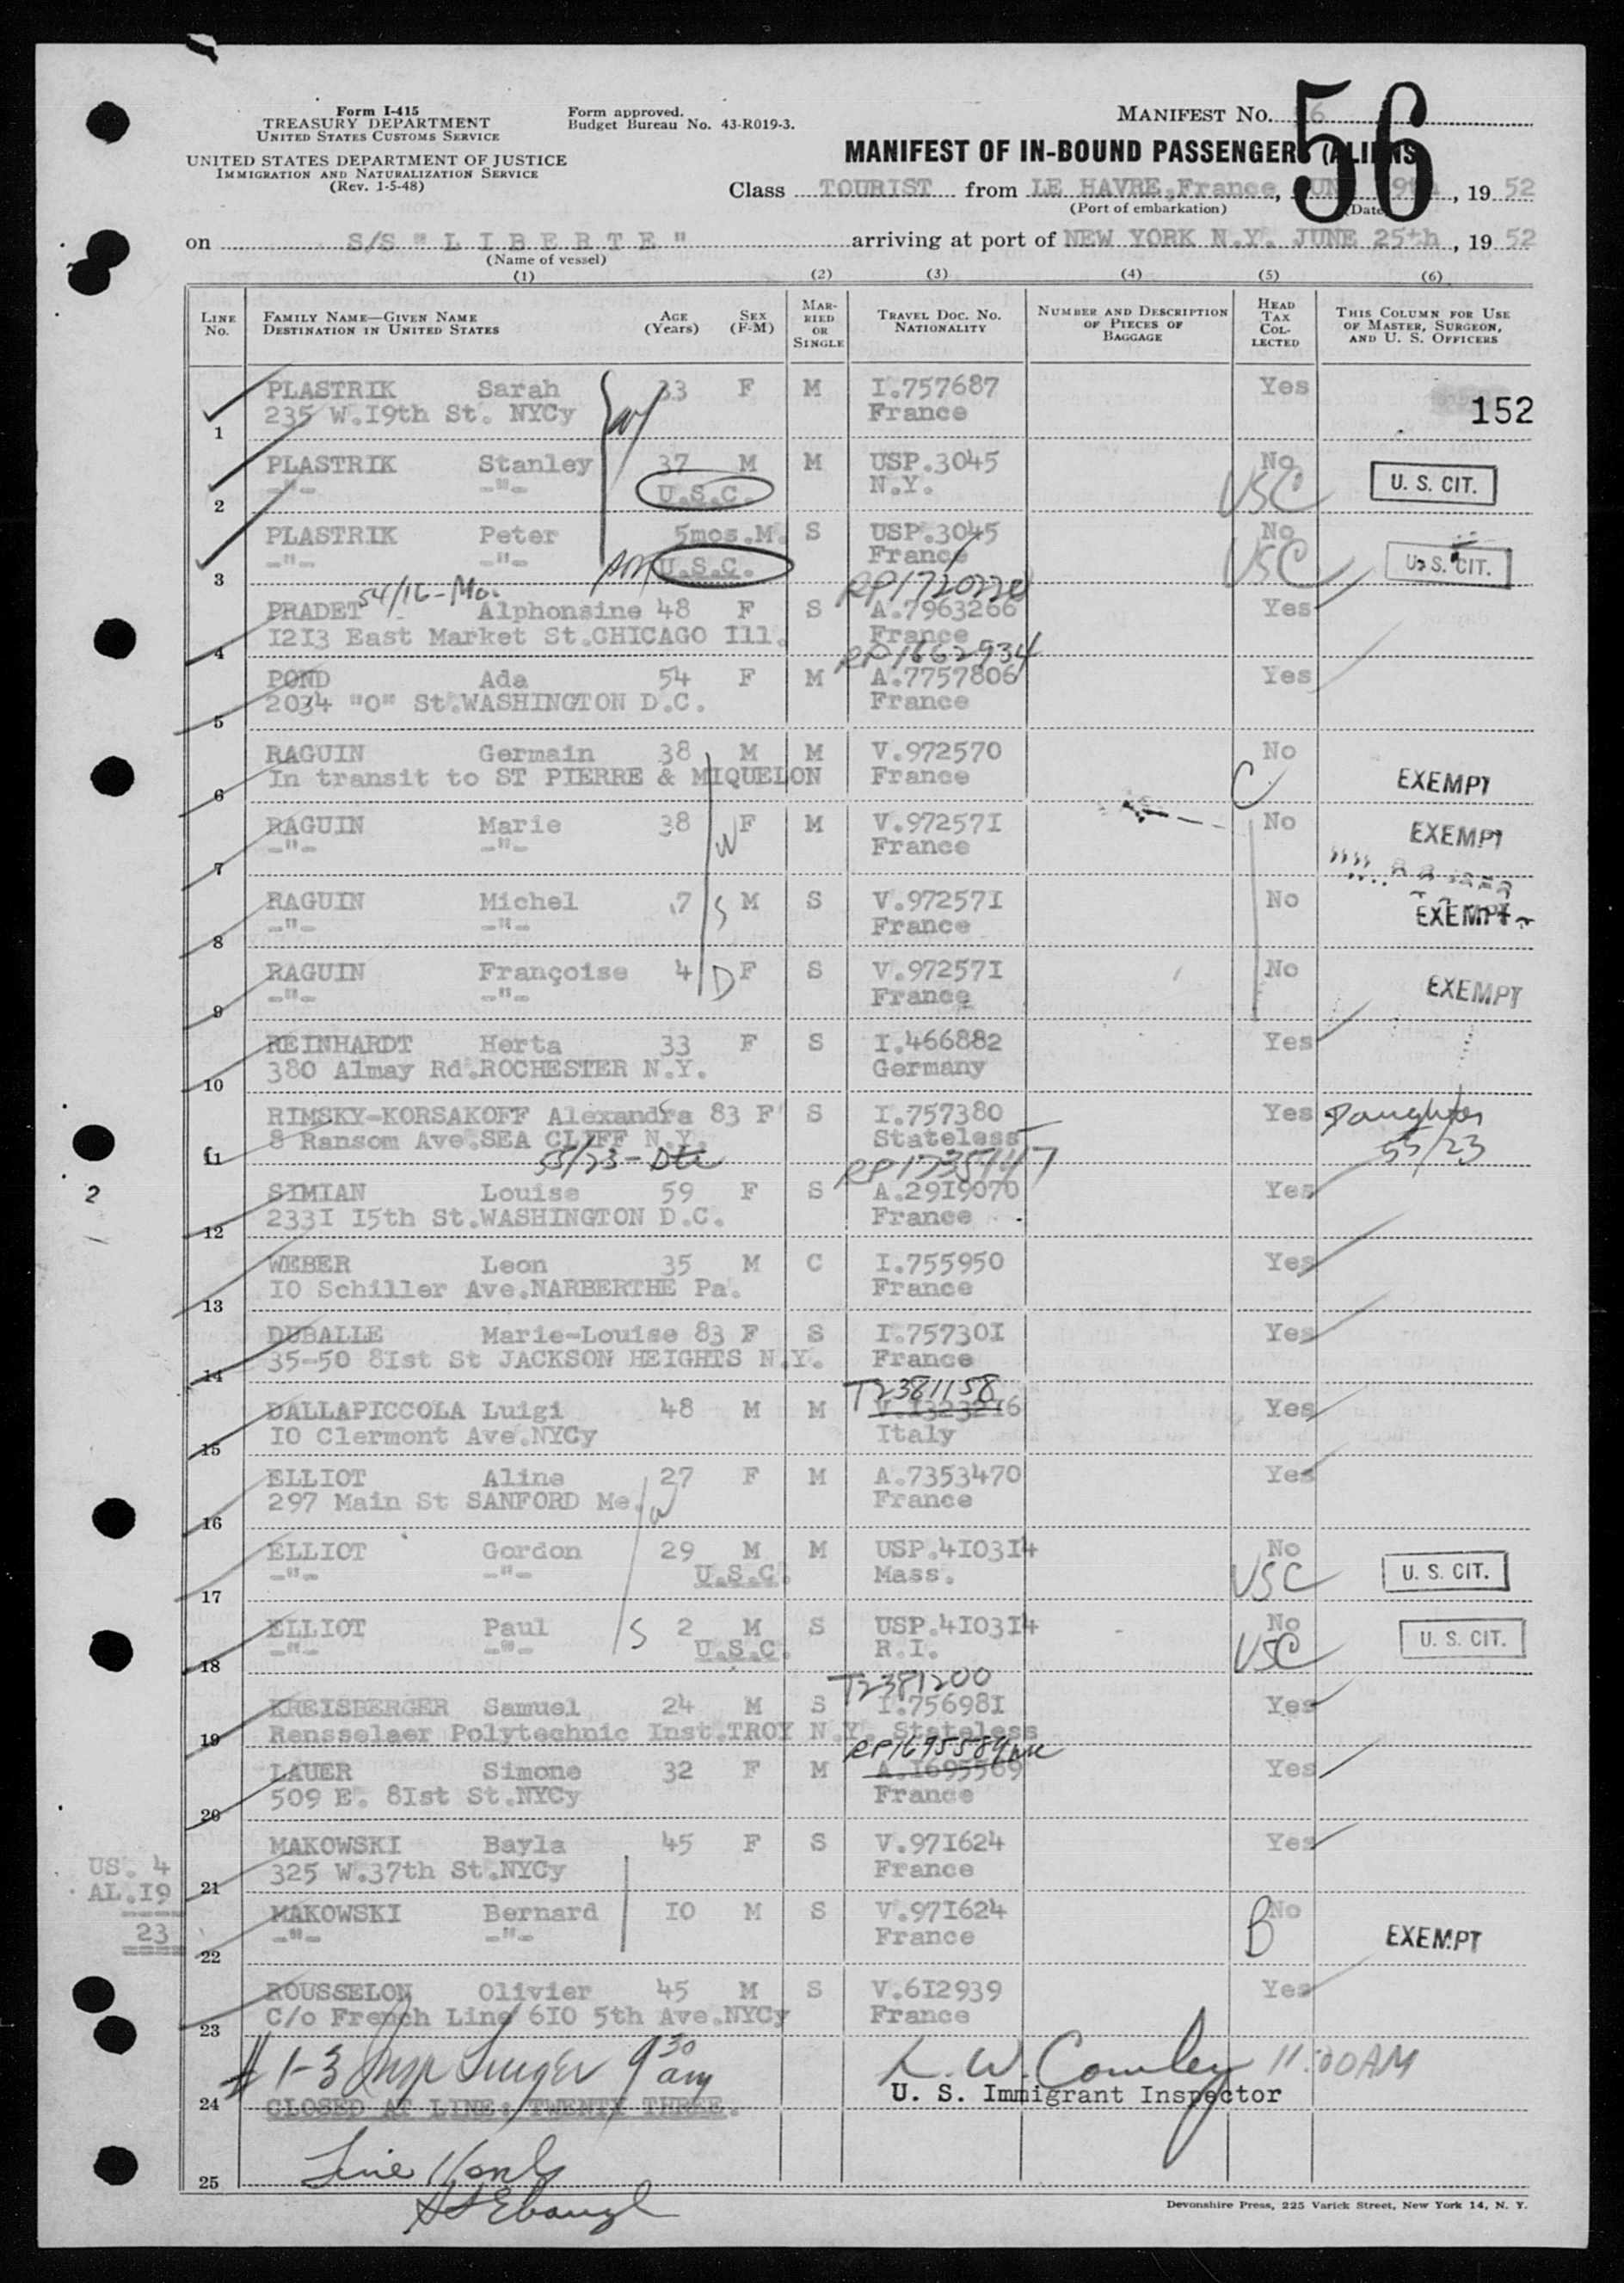 Form I-415
TREASURY DEPARTMENT
UNITED STATES CUSTOMS SERVICE
UNITED STATES DEPARTMENT OF JUSTICE
IMMIGRATION AND NATURALIZATION SERVICE
(Rev. 1-5-48)
Form approved.
Budget Bureau No. 43-R019-3.
MANIFEST NO. 6
56
MANIFEST OF IN-BOUND PASSENGERS (ALIENS)
Class TOURIST from LE HAVRE,France, JUNE 9th, 19 52
(Port of embarkation) (Date)
on S/S "L I B E R T E" arriving at port of NEW YORK N.Y. JUNE 25th, 19 52
(Name of vessel)
(1) (2) (3) (4) (5) (6)
LINE No. FAMILY NAME—GIVEN NAME DESTINATION IN UNITED STATES AGE (Years) SEX (F-M) MARRIED OR SINGLE TRAVEL DOC. NO. NATIONALITY NUMBER AND DESCRIPTION OF PIECES OF BAGGAGE HEAD TAX COLLECTED THIS COLUMN FOR USE OF MASTER, SURGEON, AND U. S. OFFICERS
PLASTRIK Sarah 33 F M I.757687 Yes
1 235 W.I9th St. NYCy W France 152
PLASTRIK Stanley 37 M M USP.3045 No
2 -"- -"- U.S.C. N.Y. USC U. S. CIT.
PLASTRIK Peter 5mos.M. S USP.3045 No
3 -"- -"- U.S.C. France USC U. S. CIT.
54/16-Mo. RP1720220
PRADET Alphonsine 48 F S A.7963266 Yes
4 I2I3 East Market St.CHICAGO Ill. France
RP1662934
POND Ada 54 F M A.7757806 Yes
5 2034 "O" St.WASHINGTON D.C. France
RAGUIN Germain 38 M M V.972570 No
6 In transit to ST PIERRE & MIQUELON France C EXEMPT
RAGUIN Marie 38 W F M V.97257I No
7 -"- -"- France EXEMPT
RAGUIN Michel 7 S M S V.97257I No
8 -"- -"- France EXEMPT
RAGUIN Françoise 4 D F S V.97257I No
9 -"- -"- France EXEMPT
REINHARDT Herta 33 F S I.466882 Yes
10 380 Almay Rd.ROCHESTER N.Y. Germany
RIMSKY-KORSAKOFF Alexandra 83 F S I.757380 Yes Daughter
11 8 Ransom Ave.SEA CLIFF N.Y. Stateless 55/23
55/23-Dtr RP1735147
SIMIAN Louise 59 F S A.29I9070 Yes
12 233I I5th St.WASHINGTON D.C. France
WEBER Leon 35 M C I.755950 Yes
13 IO Schiller Ave.NARBERTHE Pa. France
DUBALLE Marie-Louise 83 F S I.75730I Yes
14 35-50 8Ist St JACKSON HEIGHTS N.Y. France
T2381158
DALLAPICCOLA Luigi 48 M M V.I3232I6 Yes
15 IO Clermont Ave.NYCy Italy
ELLIOT Aline 27 F M A.7353470 Yes
16 297 Main St SANFORD Me. W France
ELLIOT Gordon 29 M M USP.4I03I4 No
17 -"- -"- U.S.C. Mass. USC U. S. CIT.
ELLIOT Paul S 2 M S USP.4I03I4 No
18 -"- -"- U.S.C. R.I. USC U. S. CIT.
T2381200
KREISBERGER Samuel 24 M S I.75698I Yes
19 Rensselaer Polytechnic Inst.TROY N.Y. Stateless
RP1695584
LAUER Simone 32 F M A.I695569 Yes
20 509 E. 8Ist St.NYCy France
MAKOWSKI Bayla 45 F S V.97I624 Yes
21 325 W.37th St.NYCy France
US. 4
AL.I9
23
MAKOWSKI Bernard IO M S V.97I624 No
22 -"- -"- France B EXEMPT
ROUSSELON Olivier 45 M S V.6I2939 Yes
23 C/o French Line 6IO 5th Ave.NYCy France
# 1-3 Insp Singer 9 30 am L. W. Cowley 11:00AM
U. S. Immigrant Inspector
24 CLOSED AT LINE: TWENTY THREE.
Line 11 only
25
2
Devonshire Press, 225 Varick Street, New York 14, N. Y.